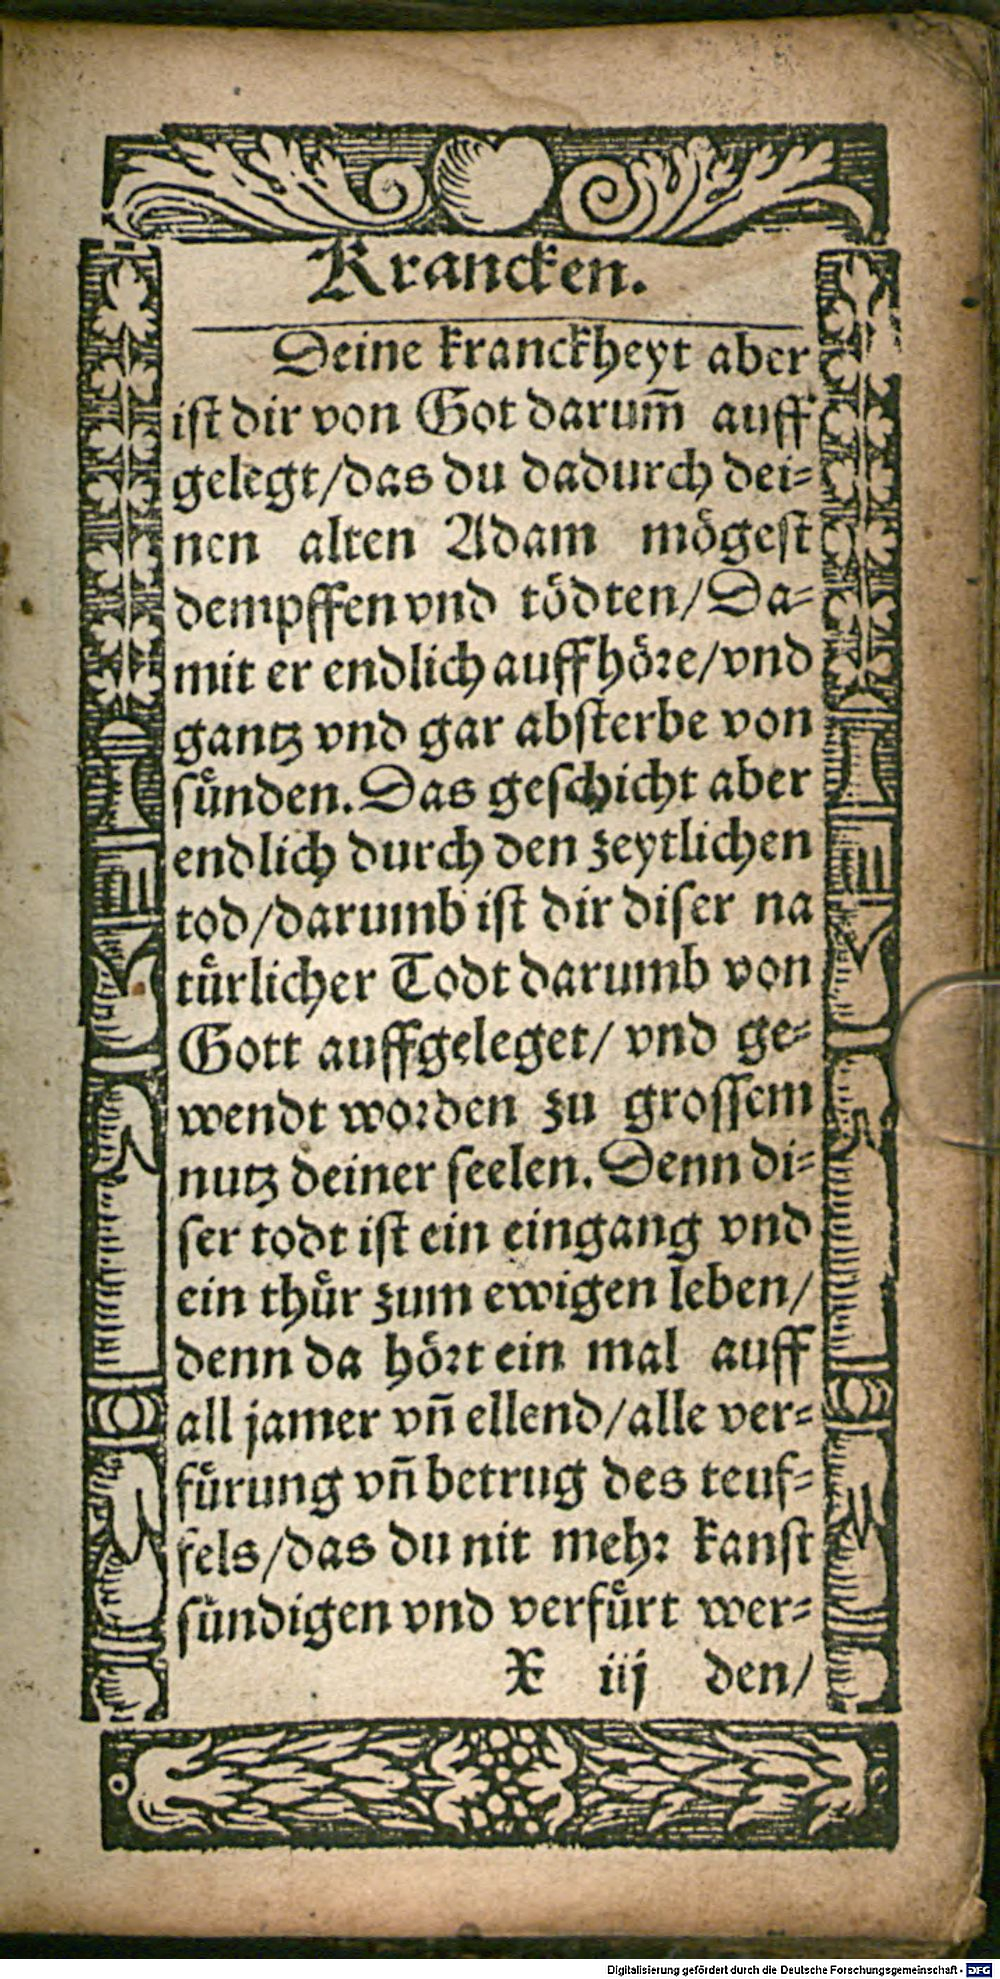 Krancken.
Deine kranckheyt aber
ist dir von Got darum̃ auff
gelegt/das du dadurch dei-
nen alten Adam mögest
dempffen vnd tödten/Da-
mit er endlich auffhöre/vnd
gantz vnd gar absterbe von
sünden. Das geschicht aber
endlich durch den zeytlichen
tod/darumb ist dir diser na
türlicher Todt darumb von
Gott auffgeleget/ vnd ge-
wendt worden zu grossem
nutz deiner seelen. Denn di-
ser todt ist ein eingang vnd
ein thür zum ewigen leben/
denn da hört ein mal auff
all jamer vñ ellend/alle ver-
fürung vñ betrug des teuf-
fels/das du nit mehr kanst
sündigen vnd verfürt wer-
X iij den/
Digitalisierung gefördert durch die Deutsche Forschungsgemeinschaft - DFG